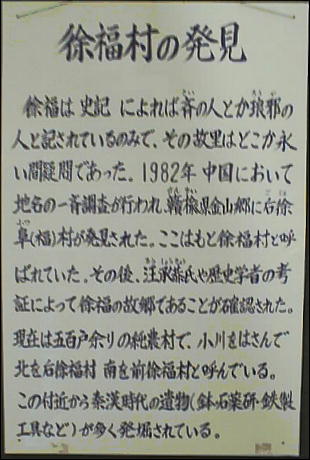 徐福村の発見
徐福は 史記 によれば斉の人とか琅邪の
人と記されているのみで、その故里はどこか永
い間疑問であった。1982年 中国において
地名の一斉調査が行われ、贛楡県金山郷に后徐
阜(福)村が発見された。ここはもと徐福村と呼
ばれていた。その後、汪承恭氏や歴史学者の考
証によって徐福の故郷であることが確認された。
現在は五百戸余りの純農村で、小川をはさんで
北を后徐福村 南を前徐福村と呼んでいる。
この付近から秦漢時代の遺物(鉢・石薬研・鉄製
工具など)が多く発掘されている。